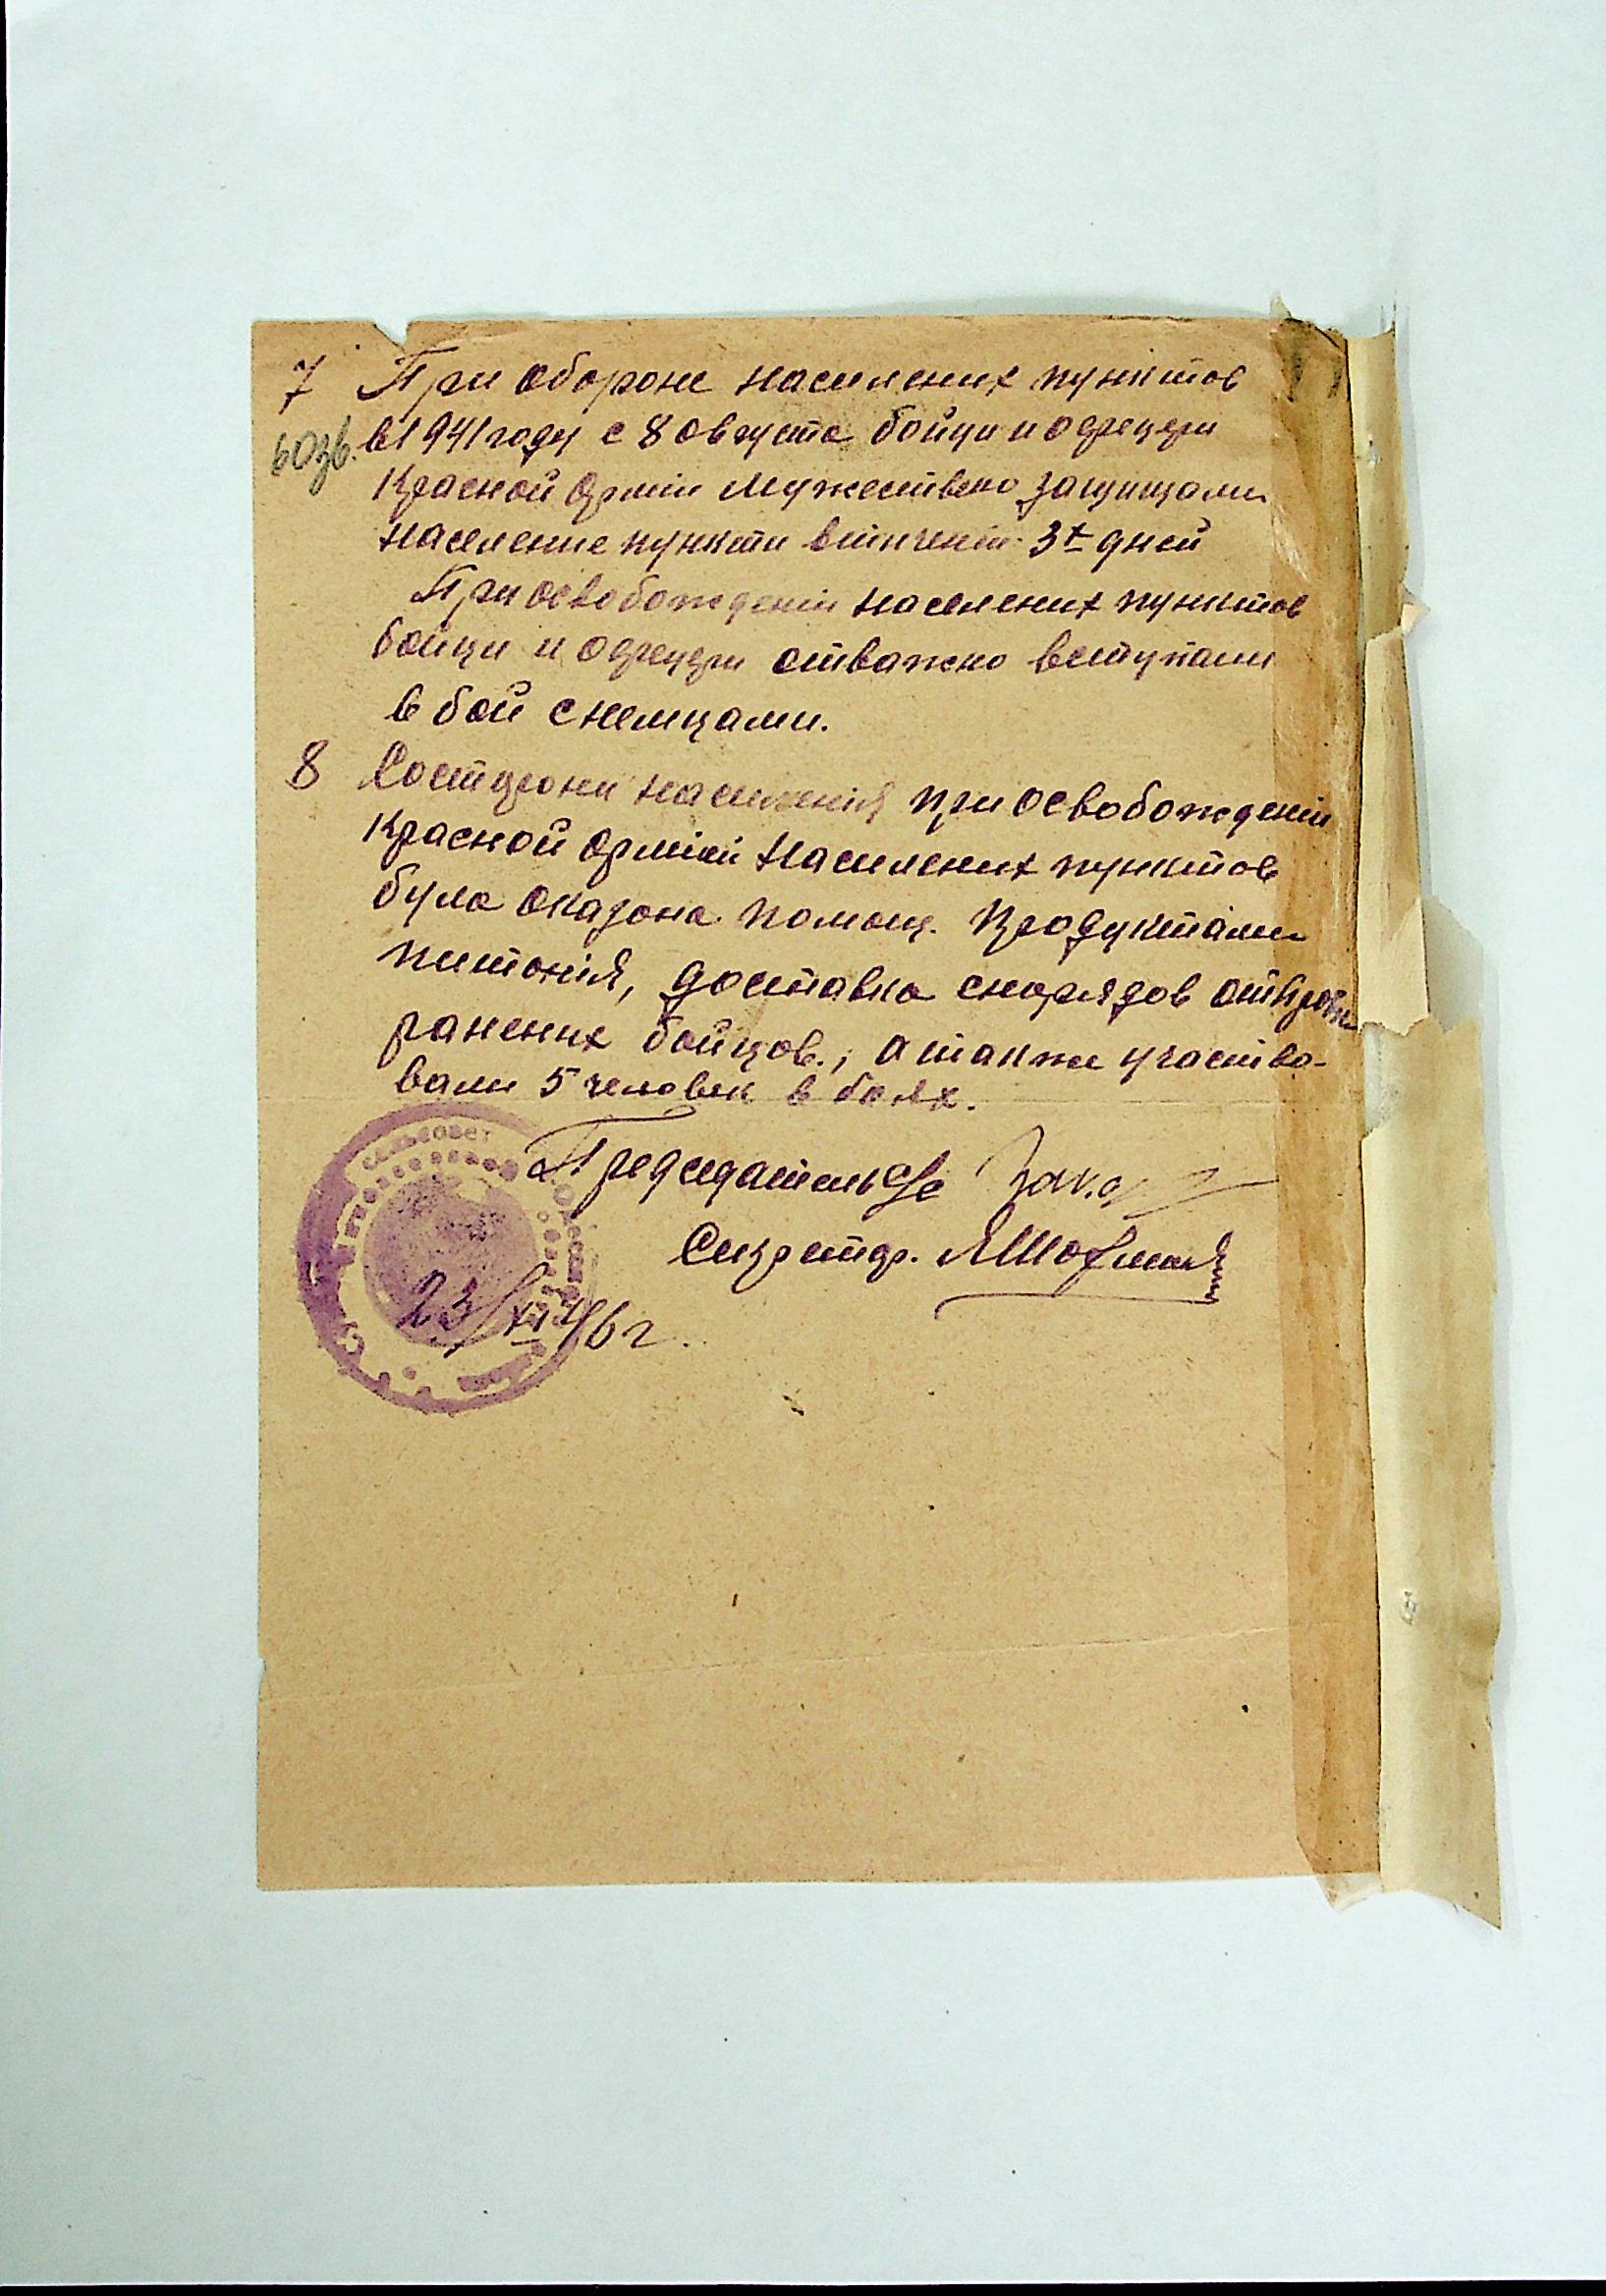 7 При обороне населених пунктов
в 1941 году с 8 августа бойци и офецери
Красной армии мужествено защищали
население пункти втичении 3х дней
При освобождении населених пунктов
бойци и офецери отважно вступали
в бой с немцами.
8 Состарони населенія при освобожденіи
Красной армией населених пунктов
була оказона помощ. продуктами
питонія, доставка снарядов отправки
ранених бойцов., а также участво-
вали 5 человек в боях.
сельсовет
Председатель с/с
Секретар.
23/XII 46 г.